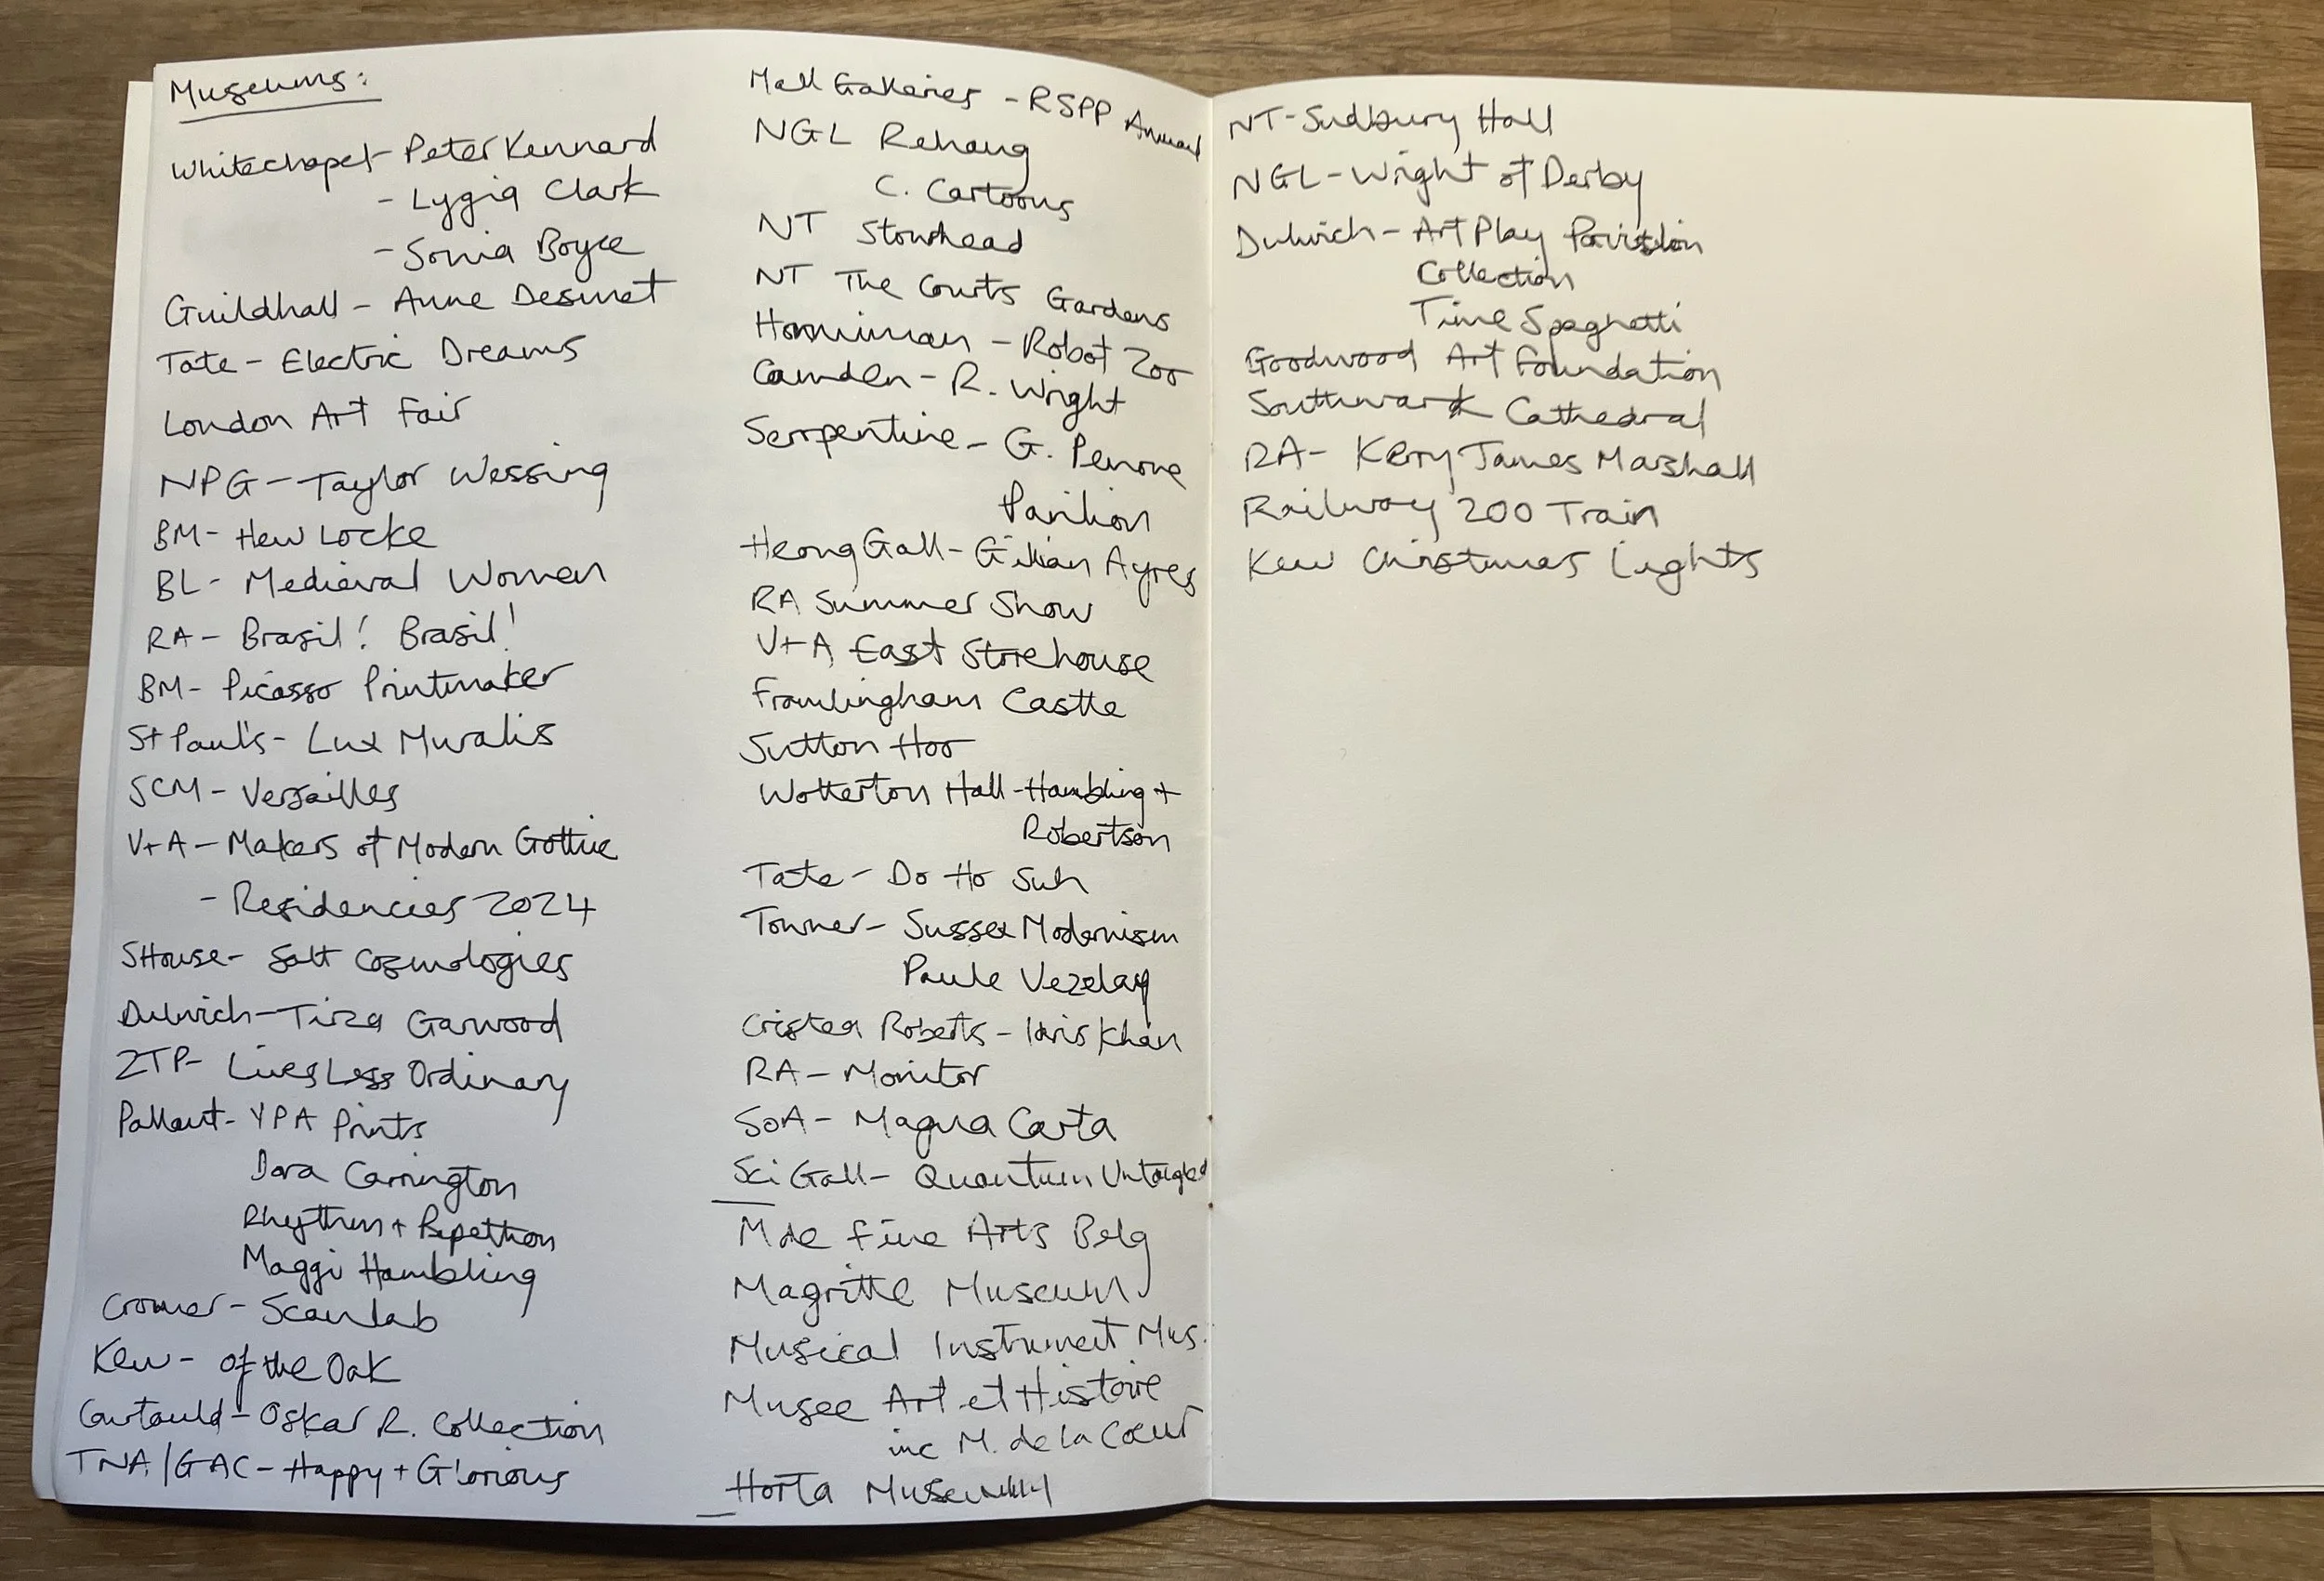 Museums:
Whitechapel - Peter Kennard
- Lygia Clark
- Sonia Boyce
Guildhall - Anne Desmet
Tate - Electric Dreams
London Art Fair
NPG - Taylor Wessing
BM - Hew Locke
BL - Medieval Women
RA - Brasil! Brasil!
BM - Picasso Printmaker
St Paul's - Lux Muralis
SCM - Versailles
V+A - Makers of Modern Gothic
- Residencies 2024
SHouse - Salt Cosmologies
Dulwich - Tirza Garwood
2TP - Lives Less Ordinary
Pallant - YPA Prints
Dora Carrington
Rhythm + Repetition
Maggi Hambling
Cromer - Scanlab
Kew - of the Oak
Courtauld - Oskar R. Collection
TNA/GAC - Happy + Glorious
Mall Galleries - RSPP Annual
NGL Rehang
C. Cartoons
NT Stourhead
NT The Courts Gardens
Horniman - Robot Zoo
Camden - R. Wright
Serpentine - G. Penone
Pavilion
Heong Gall - Gillian Ayres
RA Summer Show
V+A East Storehouse
Framlingham Castle
Sutton Hoo
Wolterton Hall - Hambling +
Robertson
Tate - Do Ho Suh
Towner - Sussex Modernism
Paule Vezelay
Cristea Roberts - Idris Khan
RA - Monitor
SoA - Magna Carta
Sci Gall - Quantum Untangled
M de Fine Arts Belg
Magritte Museum
Musical Instrument Mus.
Musee Art et Histoire
inc M. de la Coeur
Horta Museum
NT - Sudbury Hall
NGL - Wright of Derby
Dulwich - Art Play Pavilion
Collection
Time Spaghetti
Goodwood Art Foundation
Southwark Cathedral
RA - Kerry James Marshall
Railway 200 Train
Kew Christmas Lights